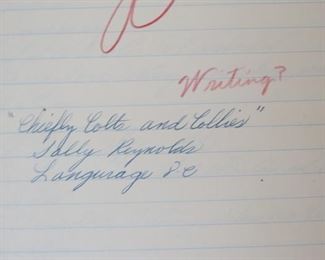 Writing?
"Chiefly Colts and Collies"
Sally Reynolds
Language 8-C